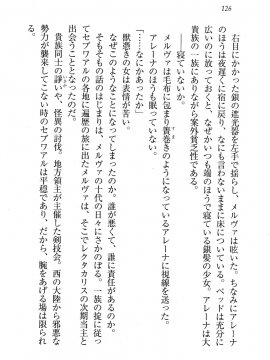 126
右目にかかった銀の遮光器を左手で揺らし、メルヴァは呟いた。ちなみにアレーナ
のほうは夜遅くに宿に戻り、なにも言わないままに床についている。ベッドは充分に
広いのに放っておくと、なぜかいつも端のほうで寝ている銀髪の少女。アレーナは大
貴族の一族にありながら案外貧乏性である。
――寝ていないか。
メルヴァは毛布に包まり簀巻きのようになっているアレーナに視線を送った。
アレーナのほうも眠っていない。
……なにかあったか。
獣憑きの女は表情が苦い。
なぜこのようなことになってしまったのか。誰が悪くて、誰に責任があるのか。
そもそもの話のはじまりは、メルヴァの十代の日々にさかのぼる。一族の掟に従っ
てセブワアルの各地に遍歴の旅に出たメルヴァは、そこでレクタカリスの次期当主と
出会うことになったのだ。
貴族同士の諍いや、怪異の討伐。地方領主が主催した剣技会。西の大陸から邪悪な
勢力が襲来してこない時のセブワアルは平穏であり、だから、腕をあげる場は限られ